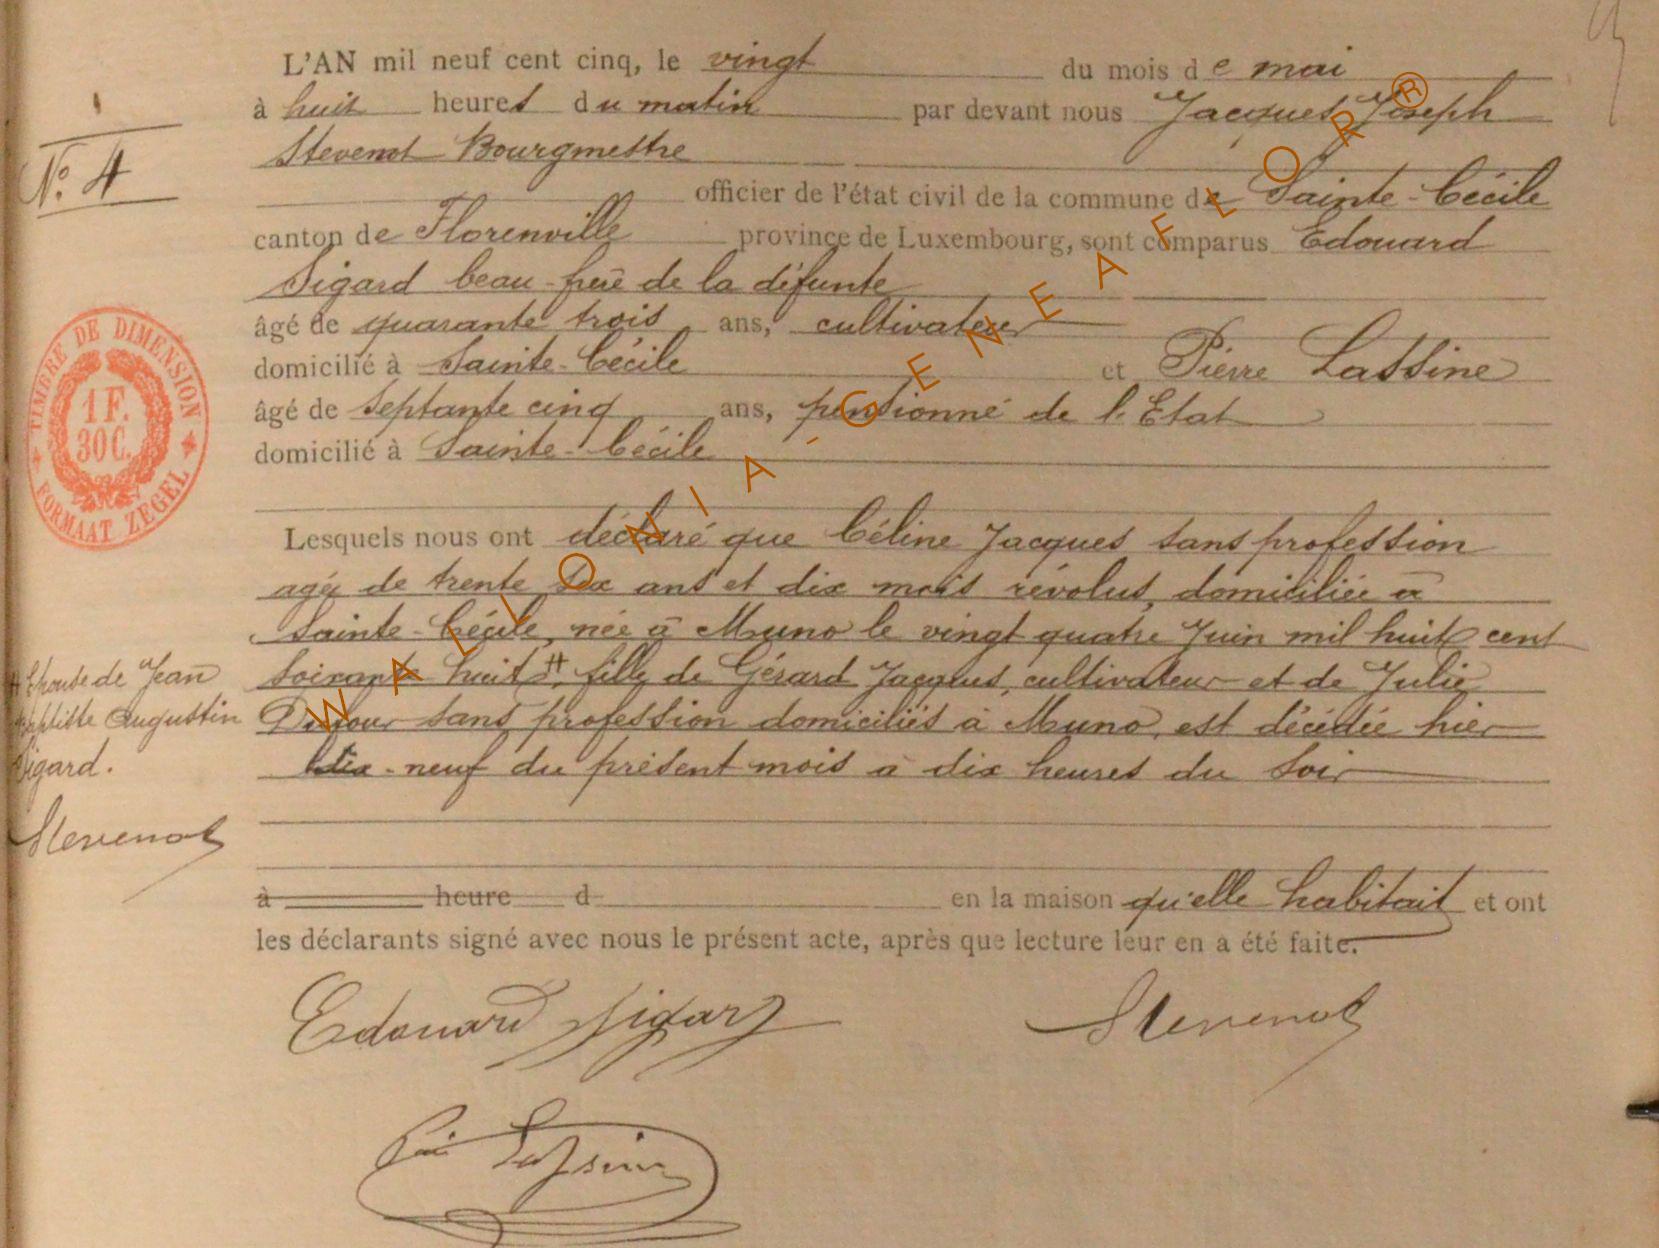 L'AN mil neuf cent cinq, le vingt du mois de mai
à huit heures du matin par devant nous Jacques Joseph
Stevenot Bourgmestre
N° 4
officier de l'état civil de la commune de Sainte-Cécile
canton de Florenville province de Luxembourg, sont comparus Edouard
Sigard beau-frère de la défunte
âgé de quarante trois ans, cultivateur
domicilié à Sainte-Cécile et Pierre Lassine
âgé de septante cinq ans, pensionné de l'Etat
domicilié à Sainte-Cécile
TIMBRE DE DIMENSION
1 F.
30 C.
FORMAAT ZEGEL
Lesquels nous ont déclaré que Céline Jacques sans profession
agée de trente six ans et dix mois révolus, domiciliée à
Sainte-Cécile, née à Muno le vingt quatre Juin mil huit cent
soixante huit #, fille de Gérard Jacques, cultivateur et de Julie
Dufour sans profession domiciliés à Muno, est décédée hier
dix-neuf du présent mois à dix heures du soir
# Epouse de Jean
Baptiste Augustin
Sigard.
Stevenot
à heure d en la maison qu'elle habitait et ont
les déclarants signé avec nous le présent acte, après que lecture leur en a été faite.
Edouard Sigard Stevenot
Lassine
WALLONIA-GENEAFLOR®